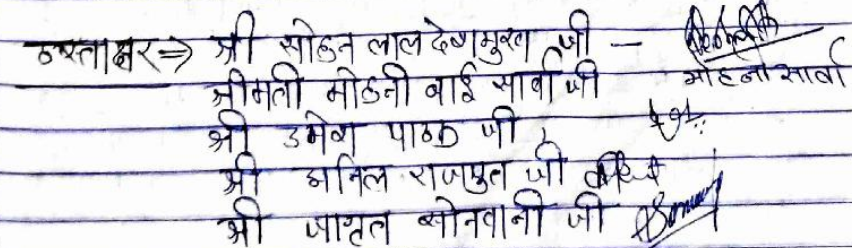 हस्ताक्षर⇒ श्री सोहन लाल देशमुख जी —
श्रीमती मोहनी बाई सार्वा जी मोहनी सार्वा
श्री उमेश पाठक जी
श्री अनिल राजपुत जी
श्री जागृत सोनवानी जी